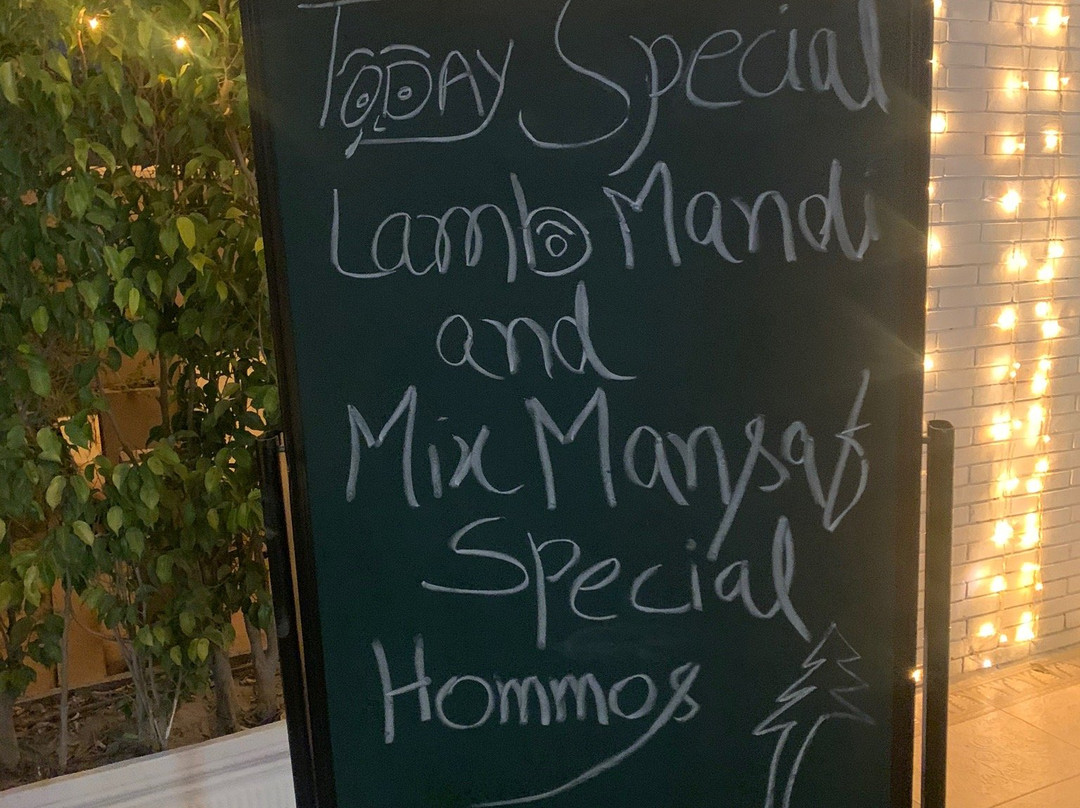 TODAY Special
Lamb Mandi
and
Mix Mansaf
Special
Hommos